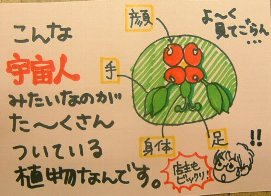 こんな
宇宙人
みたいなのが
た〜くさん
ついている
植物なんです。
顔
手
身体
足
よ〜く
見てごらん…
店主も
ビックリ!
!!